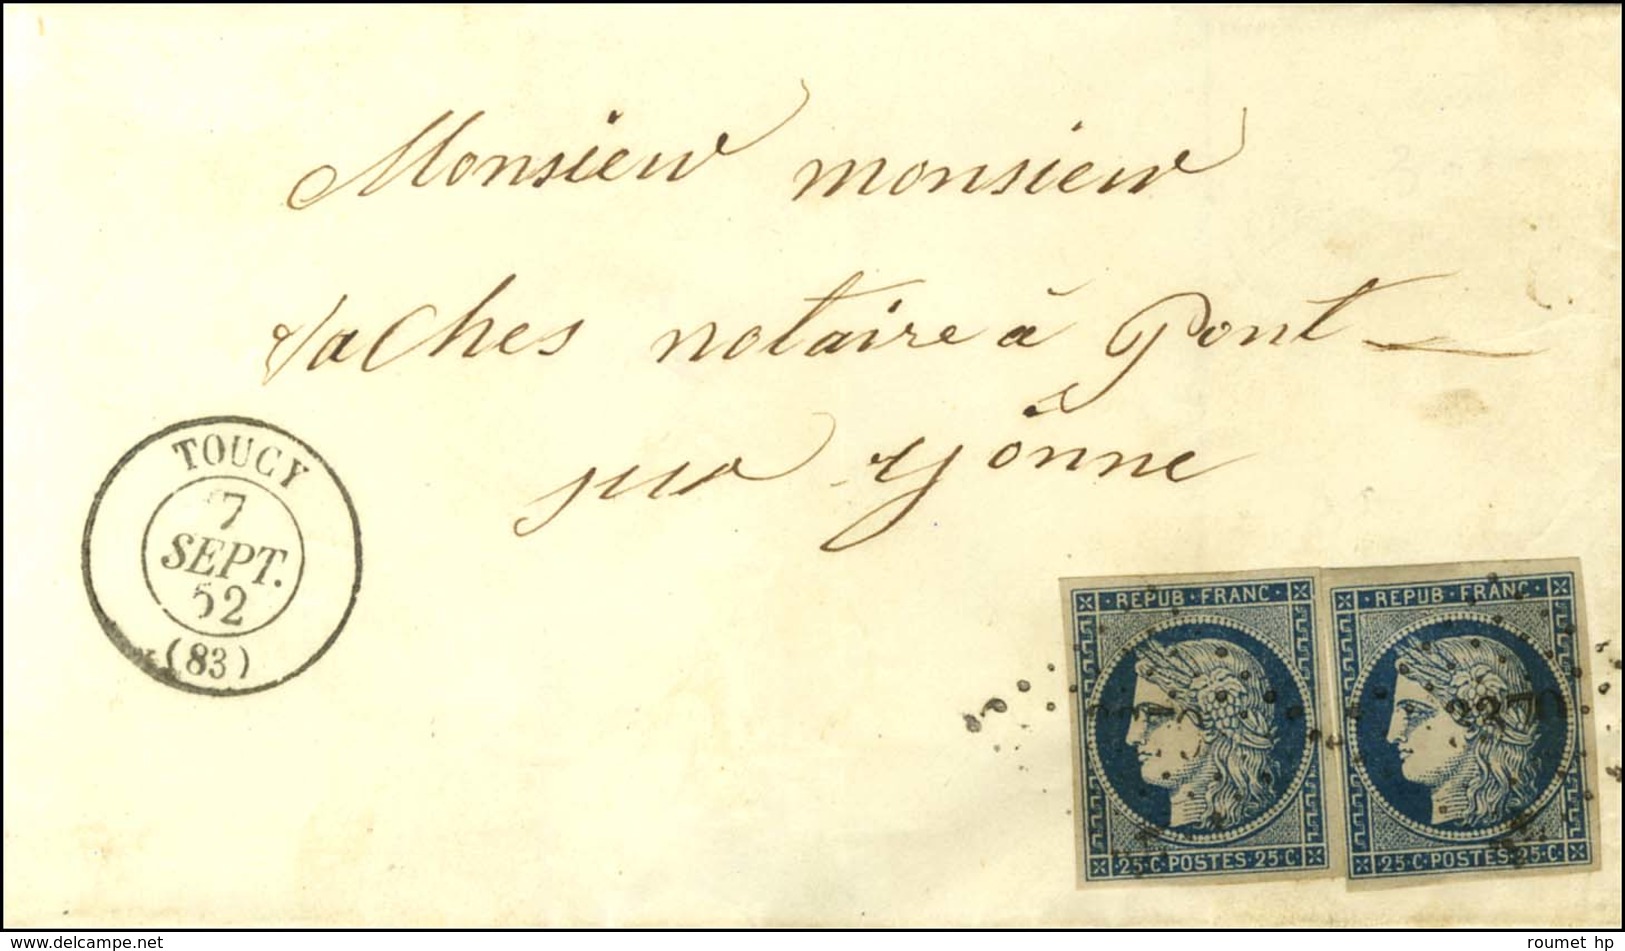 Monsieur monsieur
Vaches notaire à Pont
sur yônne
TOUCY
7
SEPT.
52
(83)
REPUB·FRANC·
REPUB·FRANC·
337
25·C·POSTES·25·C
25·C·POSTES·25·C
www.delcampe.net
roumet hp